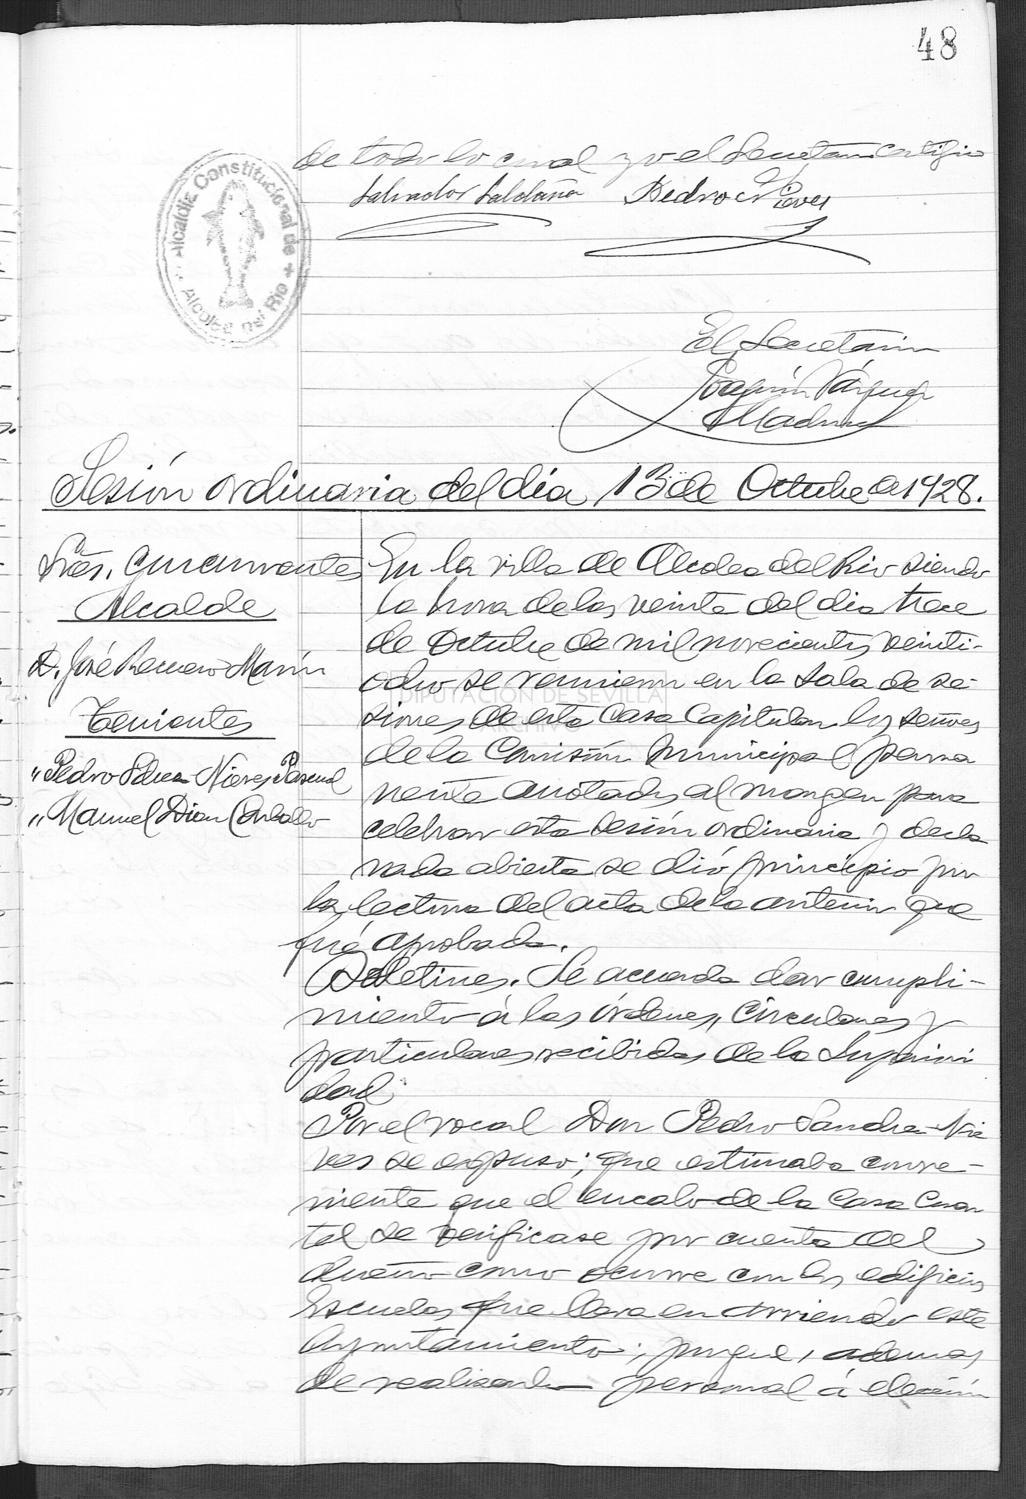 48
de todo lo cual yo el Secretario certifico
Salvador Saldaña Pedro Nieves
Alcaldia Constitucional de
Alcolea del Rio
El Secretario
Joaquín Vázquez
Sesión ordinaria del día 13 de Octubre de 1928.
Sres. concurrentes
Alcalde
D. José Romero Marín
Tenientes
" Pedro Nieves Pascual
" Manuel Díaz Carballo
En la villa de Alcolea del Rio siendo
la hora de las veinte del dia trece
de Octubre de mil novecientos veinti-
ocho se reunieron en la Sala de se-
siones de esta Casa Capitular los señores
de la Comisión Municipal perma
nente anotados al margen para
celebrar esta sesión ordinaria y decla
rada abierta se dió principio por
la lectura del acta de la anterior que
fué aprobada.
Boletines. Se acuerda dar cumpli-
miento á las órdenes, circulares y
particulares recibidas de la Superiori
dad.
Por el vocal Don Pedro Nie
ves se expuso; que estimaba conve-
niente que el encalo de la Casa Cuar
tel se verificase por cuenta del
dueño como ocurre con los edificios
Escuelas que lleva en arriendo este
Ayuntamiento; porque, ademas
de realizarlo personal á elección
DIPUTACIÓN DE SEVILLA
ARCHIVO